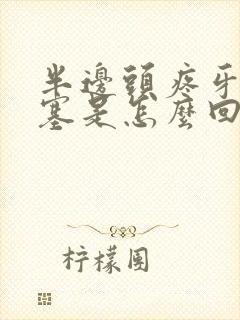 半邊頭疼牙
塞是怎麼回
柠檬围